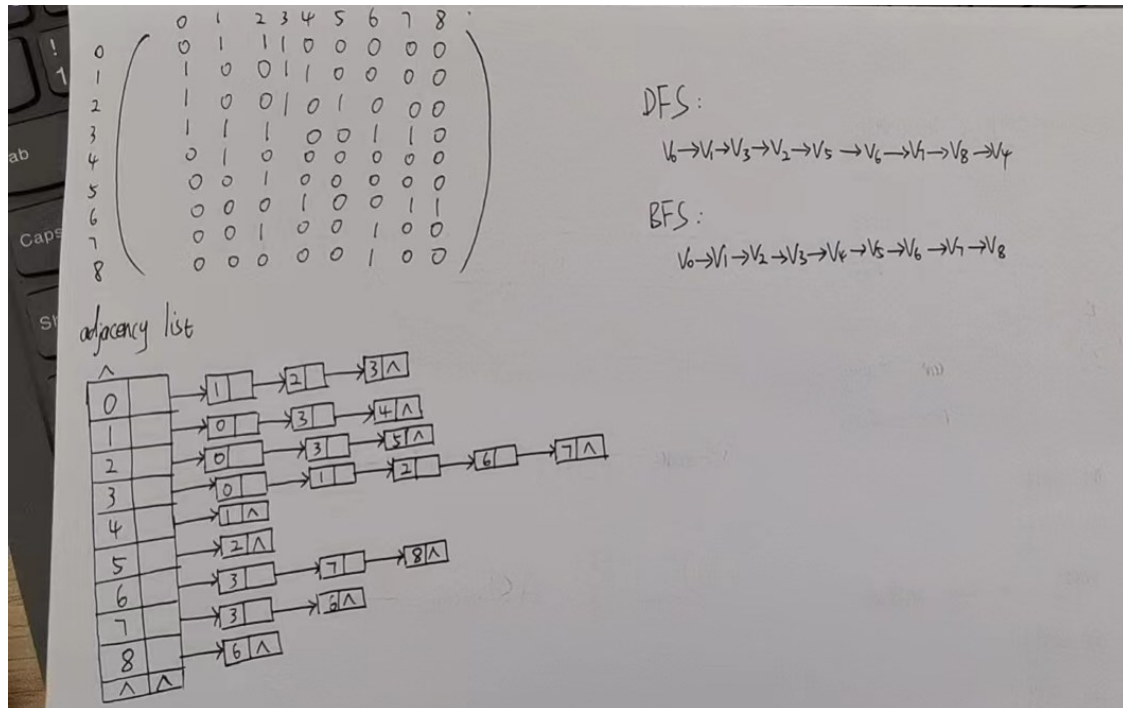 0 1 2 3 4 5 6 7 8
0 0 1 1 1 0 0 0 0 0
1 1 0 0 1 1 0 0 0 0
2 1 0 0 1 0 1 0 0 0
3 1 1 1 0 0 1 1 0
4 0 1 0 0 0 0 0 0
5 0 0 1 0 0 0 0 0
6 0 0 0 1 0 0 1 1
7 0 0 1 0 0 1 0 0
8 0 0 0 0 0 1 0 0
DFS:
V0→V1→V3→V2→V5→V6→V7→V8→V4
BFS:
V0→V1→V2→V3→V4→V5→V6→V7→V8
adjacency list
^
0 → 1 → 2 → 3 ^
1 → 0 → 3 → 4 ^
2 → 0 → 3 → 5 ^
3 → 0 → 1 → 2 → 6 → 7 ^
4 → 1 ^
5 → 2 ^
6 → 3 → 7 → 8 ^
7 → 3 → 6 ^
8 → 6 ^
^ ^
!
1
ab
Caps
Sh